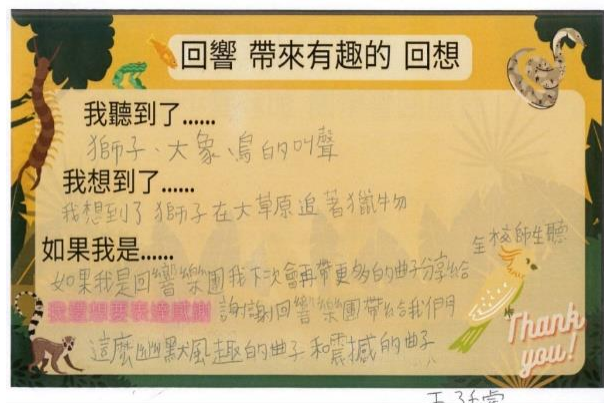 回響 帶來有趣的 回想
我聽到了......
獅子、大象、鳥的叫聲
我想到了......
我想到了獅子在大草原追著獵物
如果我是......
如果我是回響樂團我下次會再帶更多的曲子分享給
全校師生聽
我還想要表達感謝 謝謝回響樂團帶給我們
這麼幽默風趣的曲子和震撼的曲子
Thank
you!